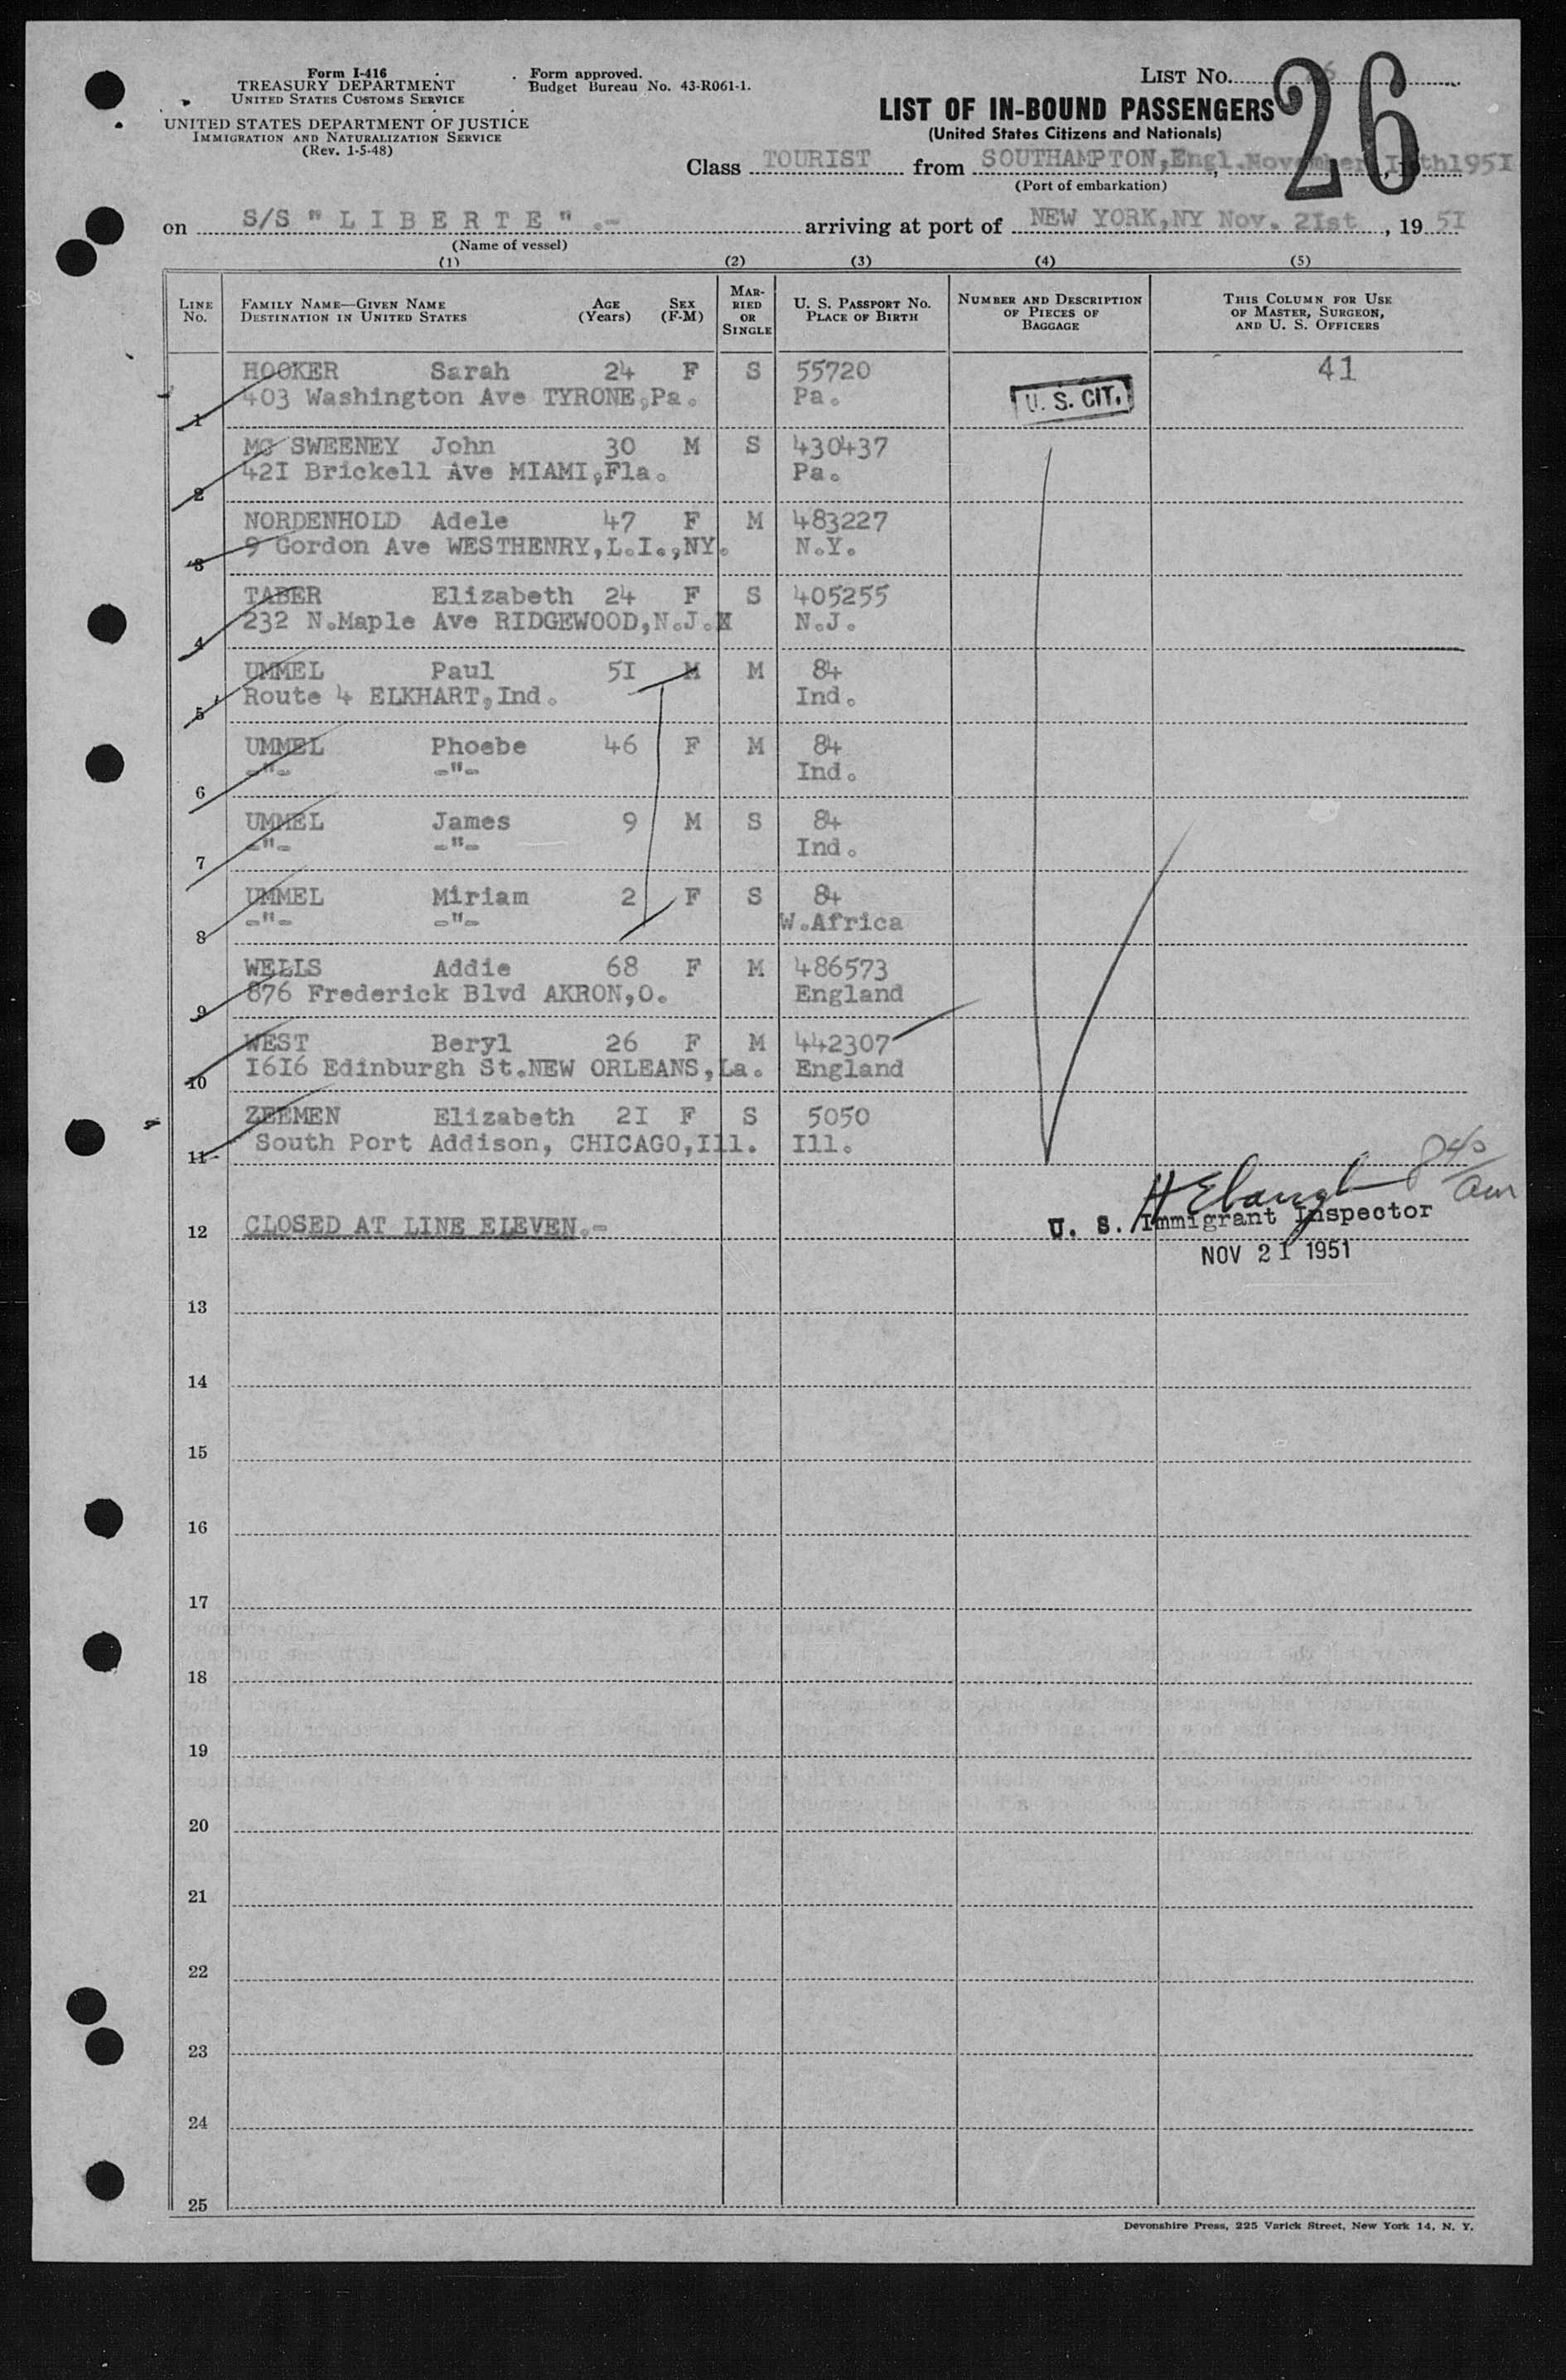 Form I-416
TREASURY DEPARTMENT
UNITED STATES CUSTOMS SERVICE
UNITED STATES DEPARTMENT OF JUSTICE
IMMIGRATION AND NATURALIZATION SERVICE
(Rev. 1-5-48)
Form approved.
Budget Bureau No. 43-R061-1.
LIST NO.
26
LIST OF IN-BOUND PASSENGERS
(United States Citizens and Nationals)
Class TOURIST from SOUTHAMPTON,Engl.November 1951
(Port of embarkation)
on S/S "LIBERTE".- arriving at port of NEW YORK,NY Nov. 2Ist, 19 5I
(Name of vessel)
(1) (2) (3) (4) (5)
LINE NO. FAMILY NAME—GIVEN NAME DESTINATION IN UNITED STATES AGE (Years) SEX (F-M) MARRIED OR SINGLE U. S. PASSPORT NO. PLACE OF BIRTH NUMBER AND DESCRIPTION OF PIECES OF BAGGAGE THIS COLUMN FOR USE OF MASTER, SURGEON, AND U. S. OFFICERS
HOOKER Sarah 24 F S 55720 41
1 403 Washington Ave TYRONE,Pa. Pa. U. S. CIT.
MC SWEENEY John 30 M S 430437
2 42I Brickell Ave MIAMI,Fla. Pa.
NORDENHOLD Adele 47 F M 483227
3 9 Gordon Ave WESTHENRY,L.I.,NY. N.Y.
TABER Elizabeth 24 F S 405255
4 232 N.Maple Ave RIDGEWOOD,N.J. N.J.
UMMEL Paul 5I M M 84
5 Route 4 ELKHART,Ind. Ind.
UMMEL Phoebe 46 F M 84
6 -"- -"- Ind.
UMMEL James 9 M S 84
7 -"- -"- Ind.
UMMEL Miriam 2 F S 84
8 -"- -"- W.Africa
WELLS Addie 68 F M 486573
9 876 Frederick Blvd AKRON,O. England
WEST Beryl 26 F M 442307
10 I6I6 Edinburgh St.NEW ORLEANS,La. England
ZEEMEN Elizabeth 2I F S 5050
11 South Port Addison, CHICAGO,Ill. Ill.
12 CLOSED AT LINE ELEVEN.-
U. S. Immigrant Inspector
NOV 21 1951
13
14
15
16
17
18
19
20
21
22
23
24
25
Devonshire Press, 225 Varick Street, New York 14, N. Y.